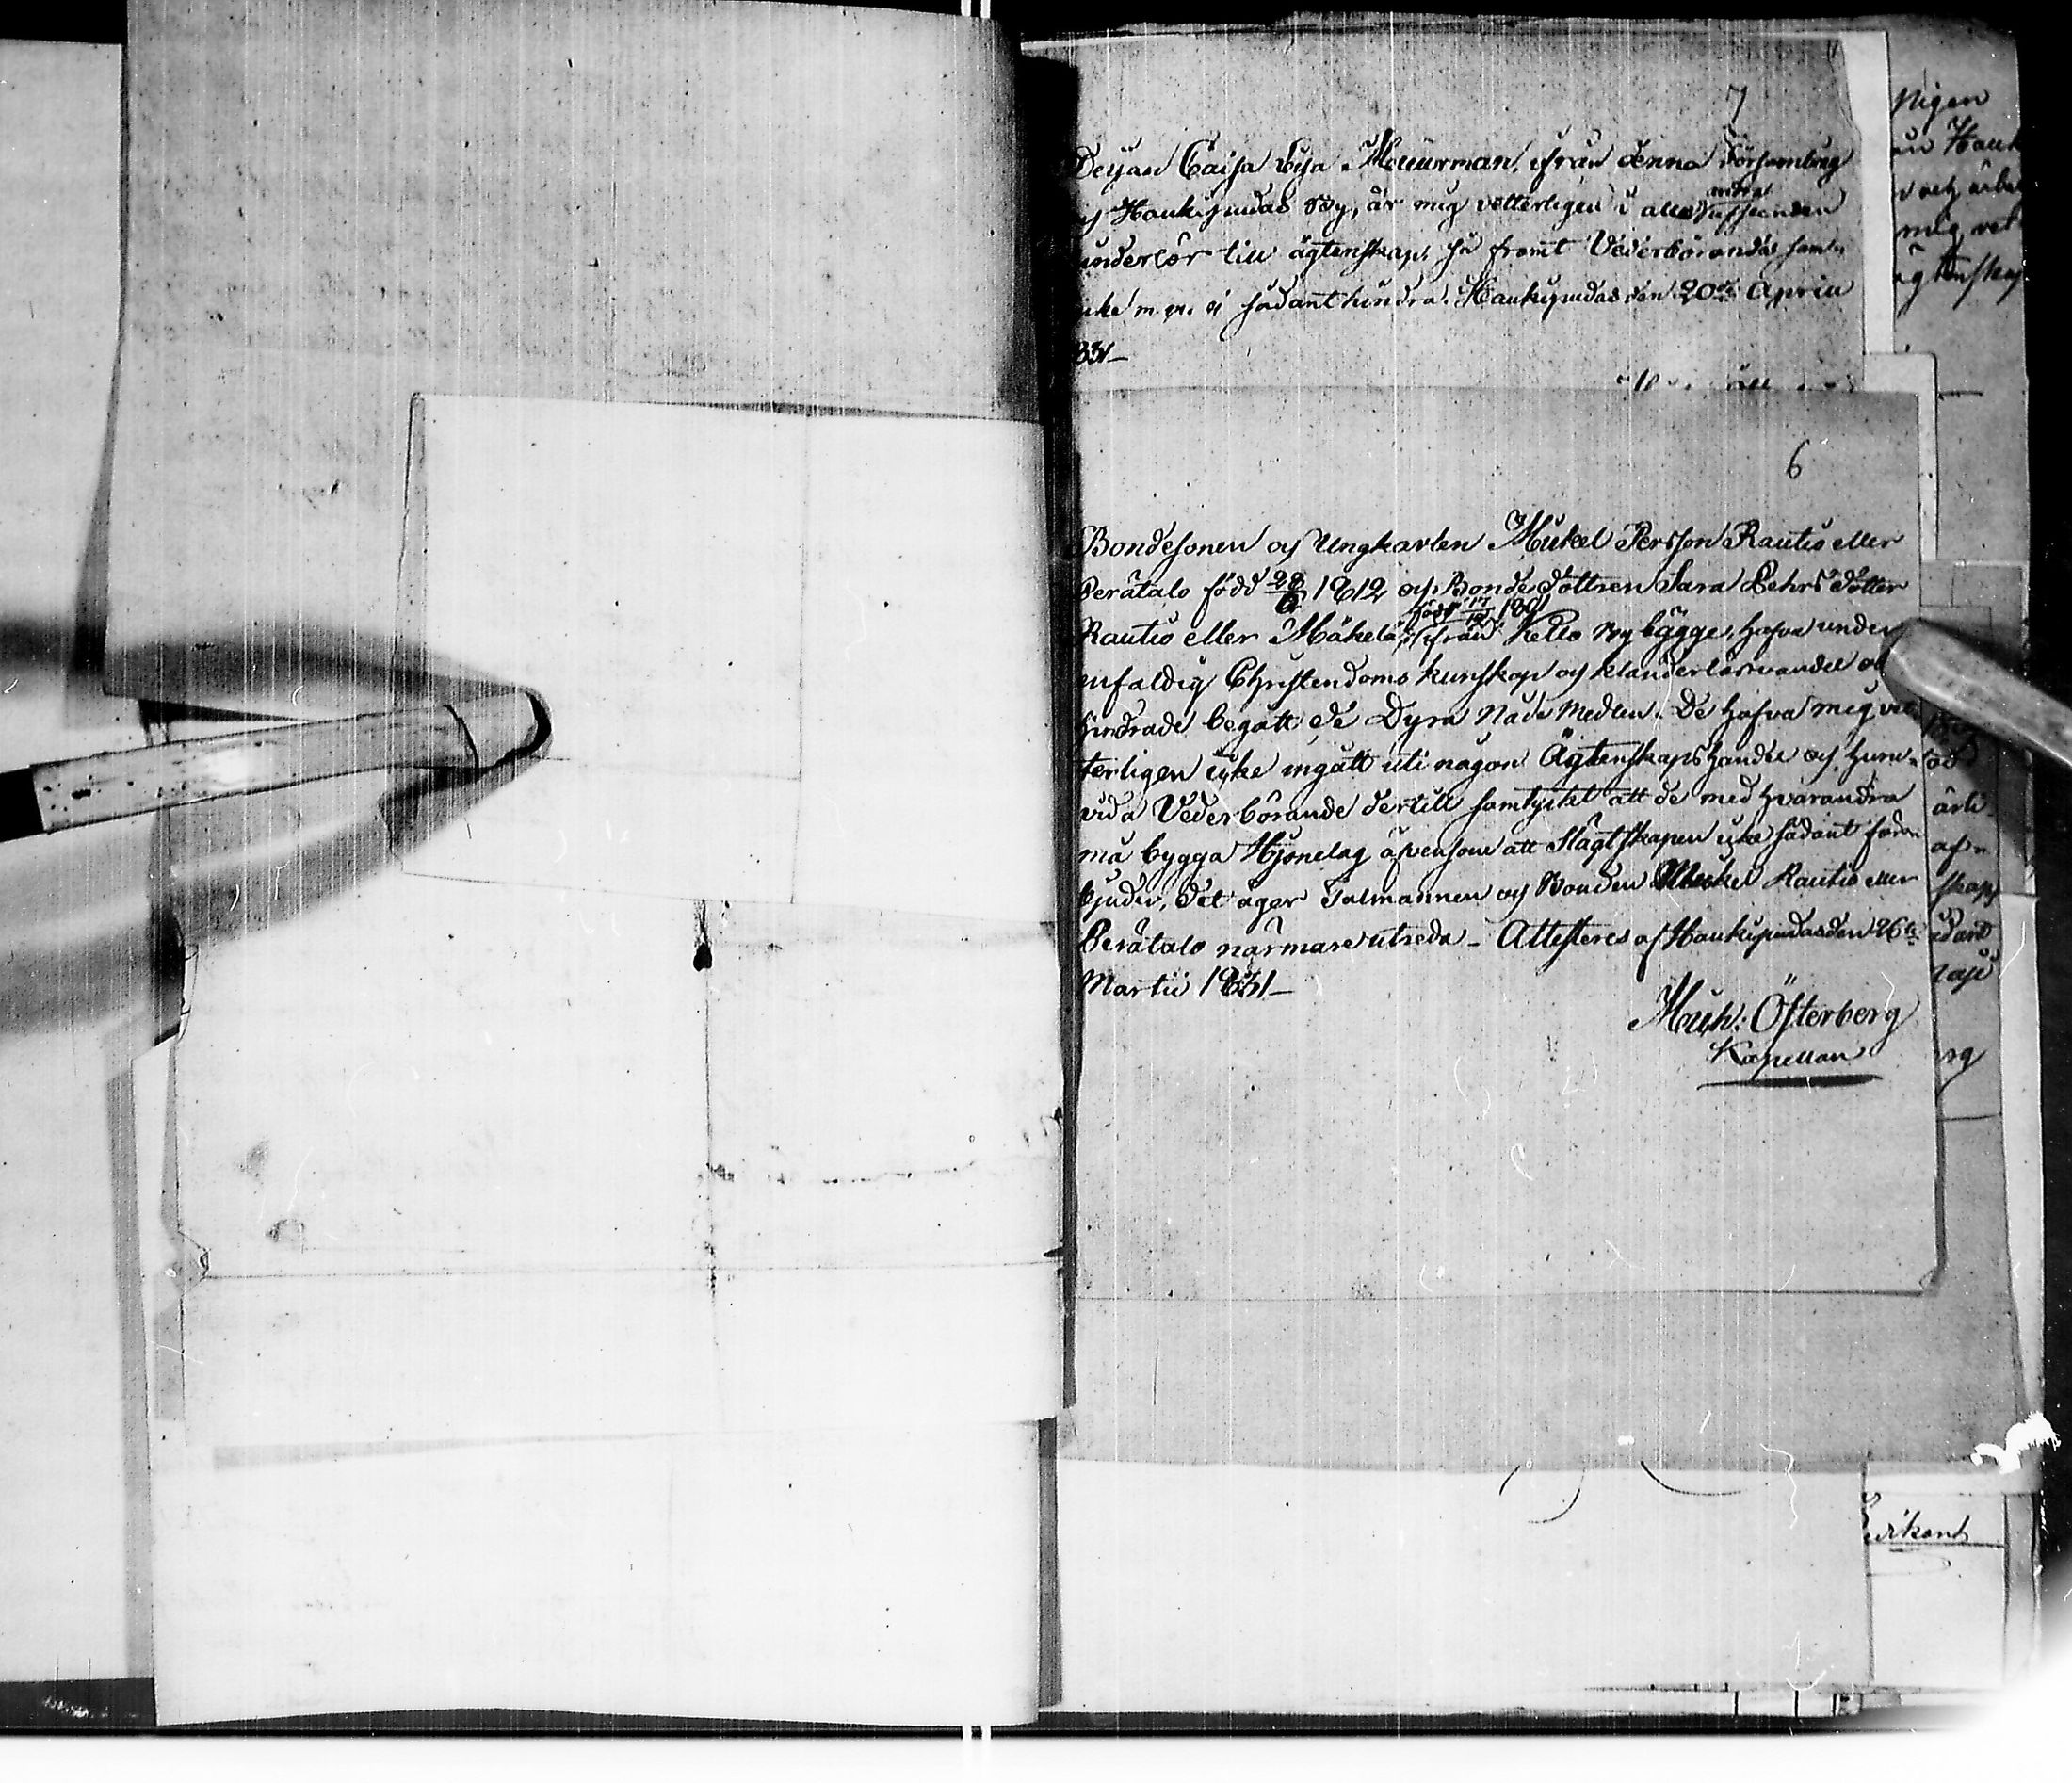 7
Deijan Caisa Lisa Meuurman, ifrån denna Församling
och Haukipudas By, är mig vetterligen i alla andra afseenden
underbar till ägtenskap, så framt Vederbörandes sam-
ike m. m. ej sådant hindra. Haukipudas den 20de Aprill
831_
6
Bondesonen och Ungkarlen Mickel Persson Rautio eller
Perätalo född 28/6 1812, och Bondedottren Sara Pehrsdotter
Rautio eller Mäkelä, född 17/12 1801 ifrån Kello Nybygge, hafva under
enfaldig Christendoms kunskap och klanderlös vandel o
hindrade begått de Dyra Nåde Medlen. De hafva mig vet-
terligen icke ingått uti någon Ägtenskapshandel och huru-
vida Vederbörande dertill samtyckt att de med hvarandra
må bygga Hjonelag äfvensom att Slägtskapen icke sådant för-
bjuder, det äger Talmannen och Bonden Mickel Rautio eller
Perätalo närmare utreda _ Attesteres af Haukipudas den 26te
Martii 1831_
Mich: Österberg
Kapellan
pigan
mig vet
ägtenskap
ärli
af
skap
rg